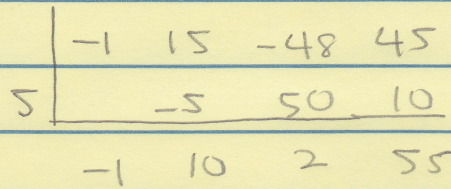 -1 15 -48 45
5 -5 50 10
-1 10 2 55